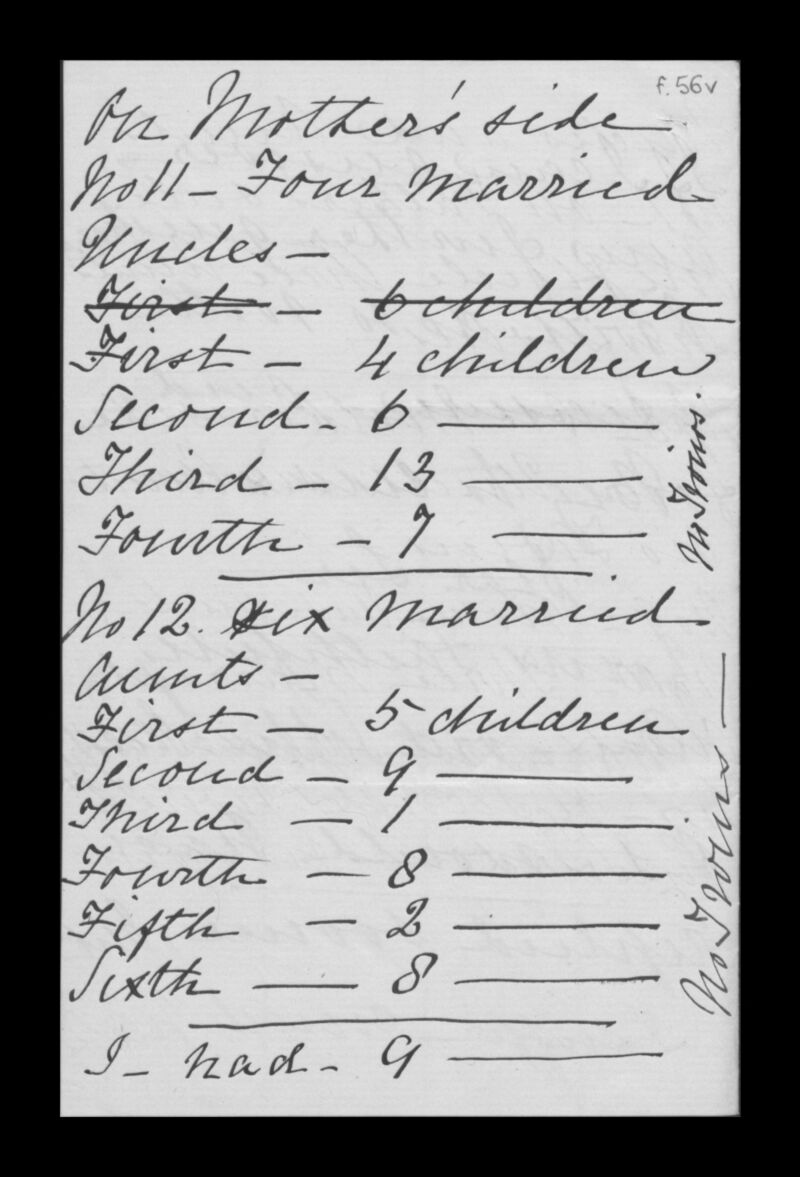 f. 56v
On Mother's side
No 11 - Four married
Uncles -
First - 6 children
First - 4 children
Second - 6 —
Third - 13 —
Fourth - 7 —
No Twins.
No 12. Six married
Aunts -
First - 5 children
Second - 9 —
Third - 1 —
Fourth - 8 —
Fifth - 2 —
Sixth — 8 —
No Twins —
I - had - 9 —